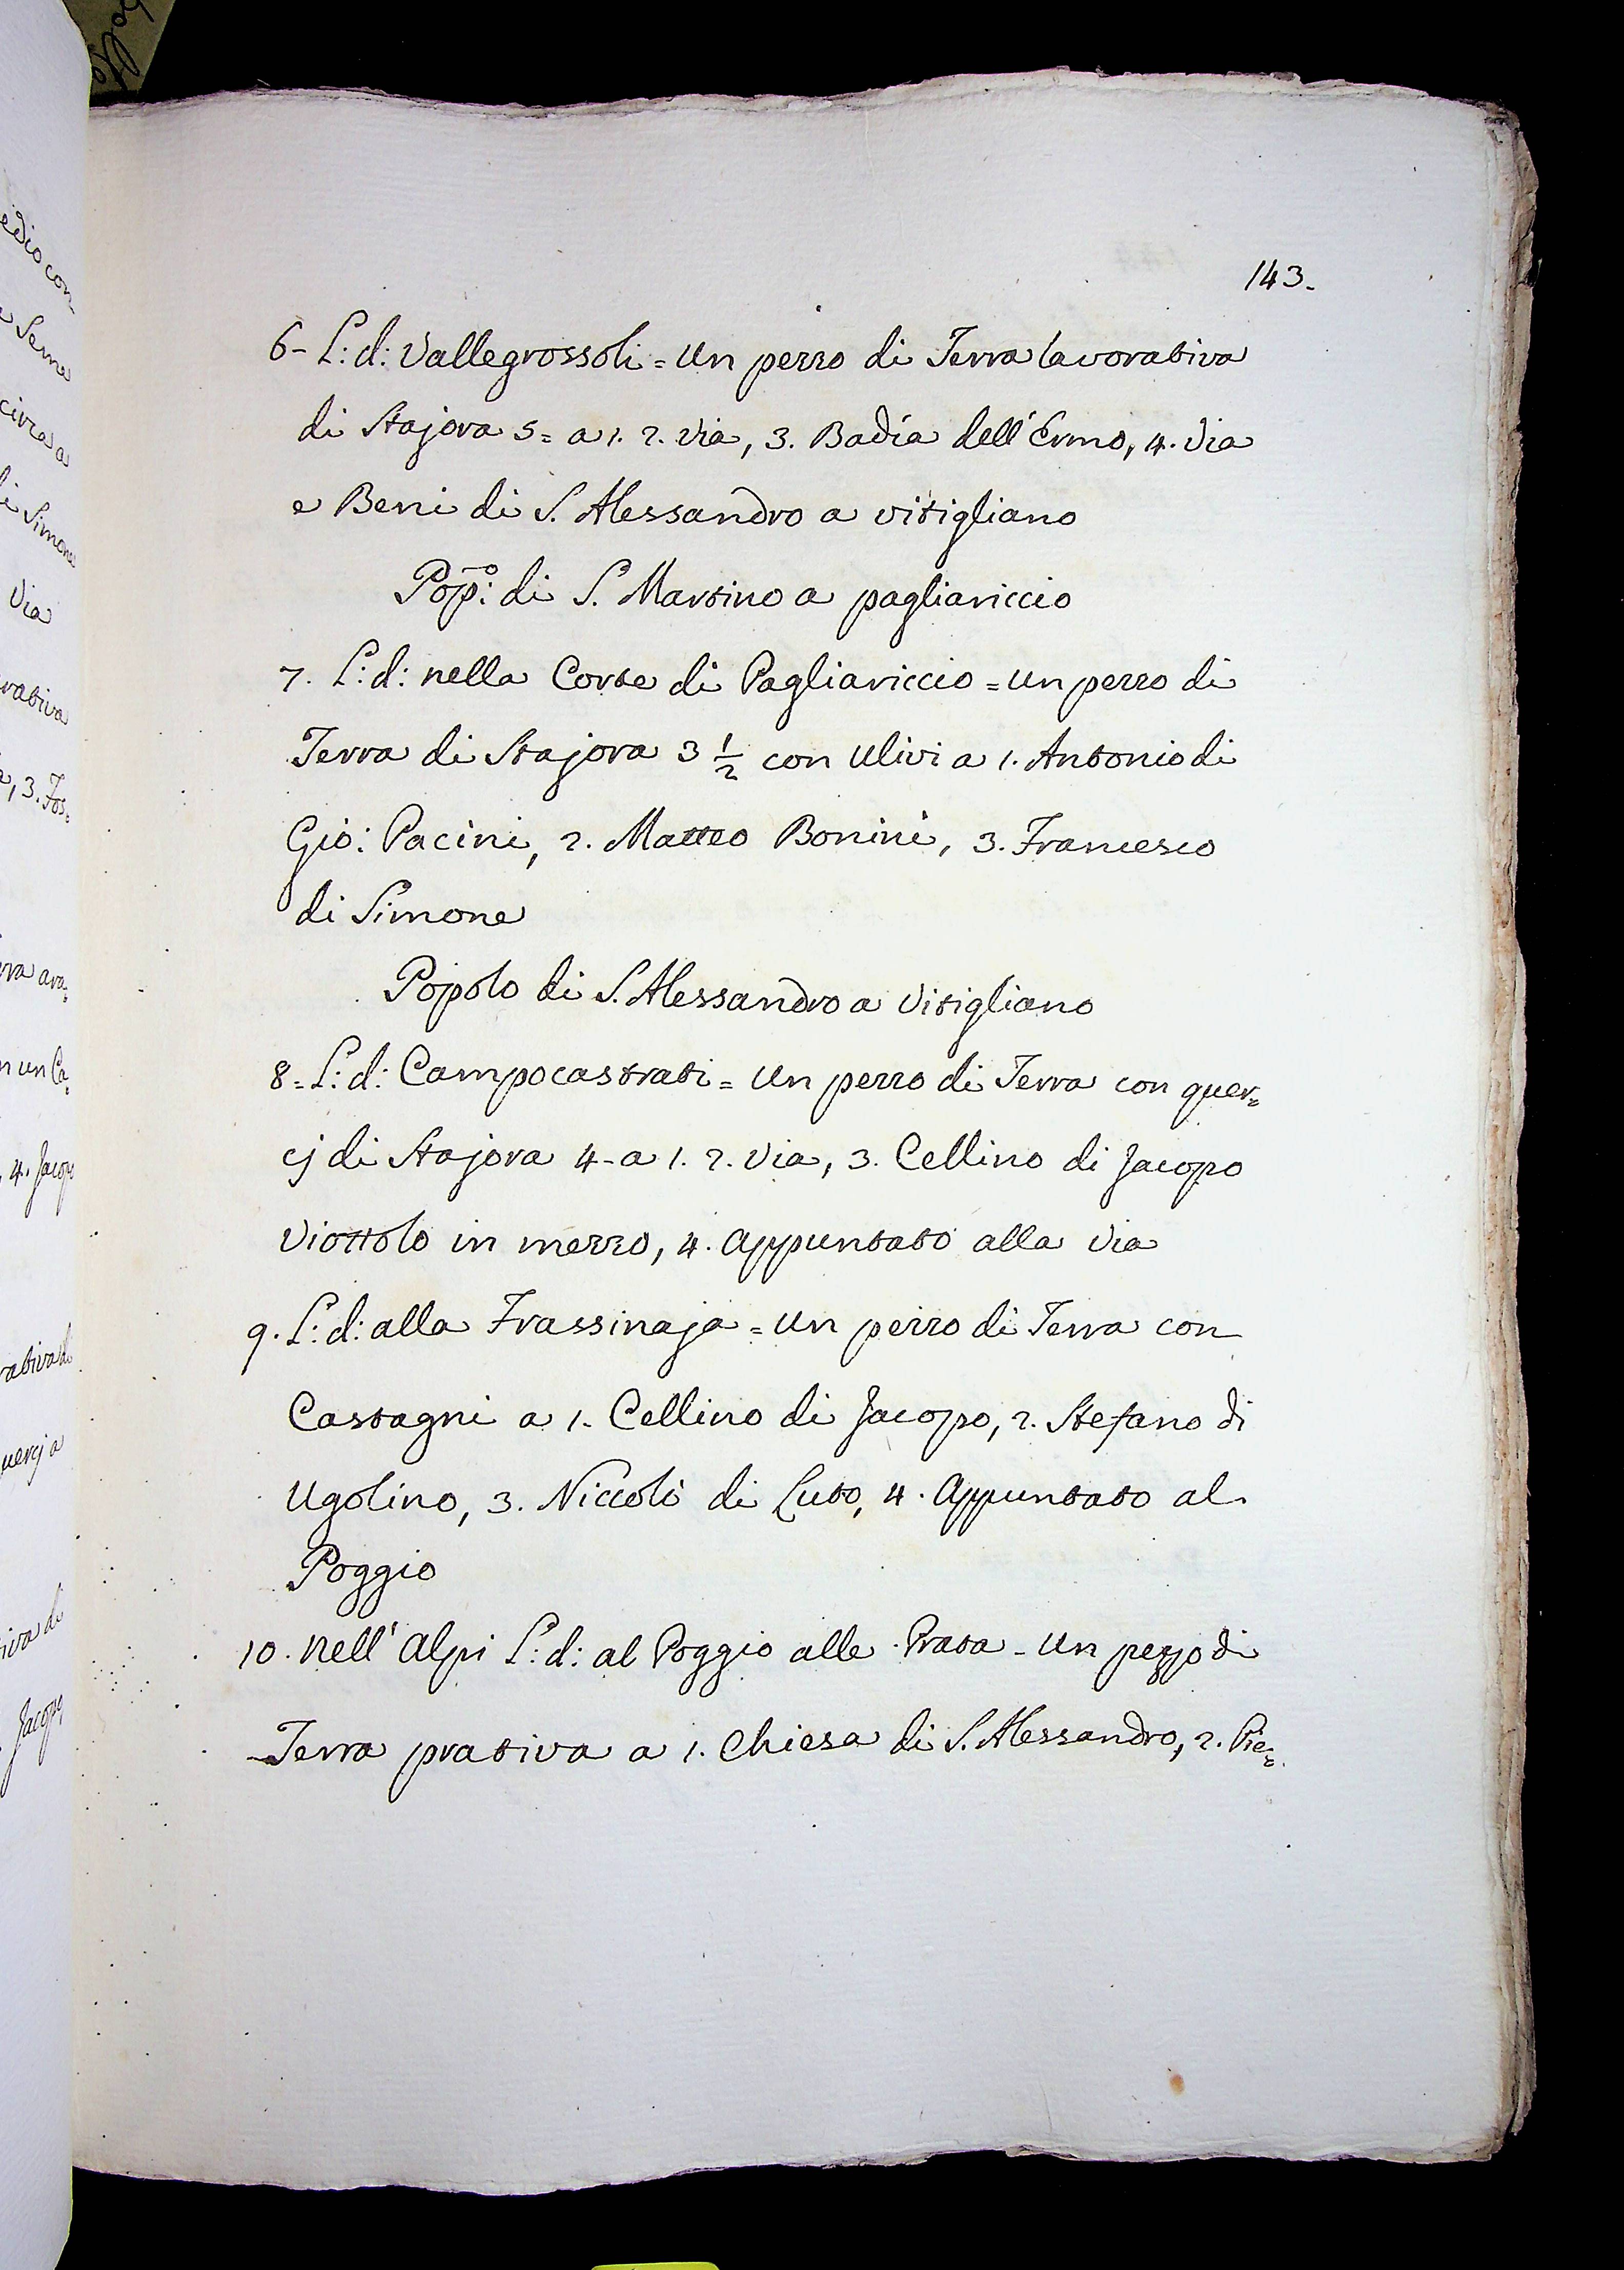 143.
6- L: d: Vallegrossoli = Un pezzo di Terra lavorativa
di Stajora 5= a 1. 2. Via, 3. Badía dell'Ermo, 4. Via
e Beni di S. Alessandro a vitigliano
Pop:o di S. Martino a pagliariccio
7. L: d: nella Corte di Pagliariccio = Un pezzo di
Terra di Stajora 3 1/2 con Ulivi a 1. Antonio di
Gio: Pacini, 2. Matteo Bonini, 3. Francesco
di Simone
Popolo di S. Alessandro a Vitigliano
8= L: d: Campocastrati = Un pezzo di Terra con quer=
cj di Stajora 4- a 1. 2. Via, 3. Cellino di Jacopo
Viottolo in mezzo, 4. Appuntato alla Via
9. L: d: alla Frassinaja = Un pezzo di Terra con
Castagni a 1. Cellino di Jacopo, 2. Stefano di
Ugolino, 3. Niccolò di Luto, 4. Appuntato al
Poggio
10. Nell'Alpi L: d: al Poggio alle Prata - Un pezzo di
Terra prativa a 1. Chiesa di S. Alessandro, 2. Pie=